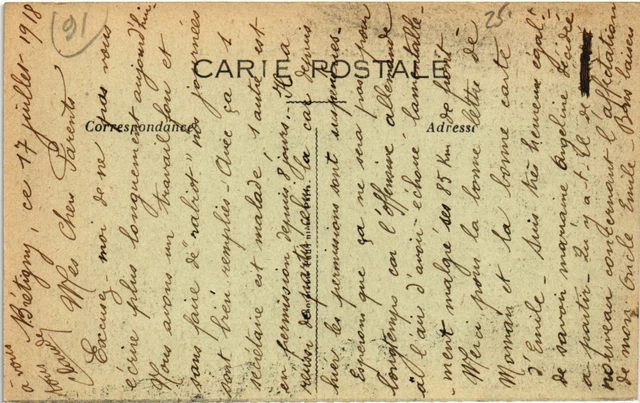 91
25.
CARTE POSTALE
Correspondance
Adresse
Brétigny, ce 17 juillet 1918
Mes Chers Parents
Excusez-moi de ne pas vous
écrire plus longuement aujourd'hui
Nous avons un travail fou et
sans faire de "rabiot" nos journées
sont bien remplies - Avec ça 1
secrétaire est malade, l'autre est
en permission depuis 8 jours. Il a
réussi de partir car depuis
hier les permissions sont suspendues.
Espérons que ça ne sera pas pour
longtemps car l'offensive allemande
a l'air d'avoir échoué lamentable-
ment malgré ses 85 Km de front -
Merci pour la bonne lettre de
Maman et la bonne carte
d'Emile - Suis très heureux égalt
de savoir marraine Angeline décidée
à partir - Il y a-t-il de
nouveau concernant l'affectation
de mon Oncle Emile - Bons baisers
à vous
tous de